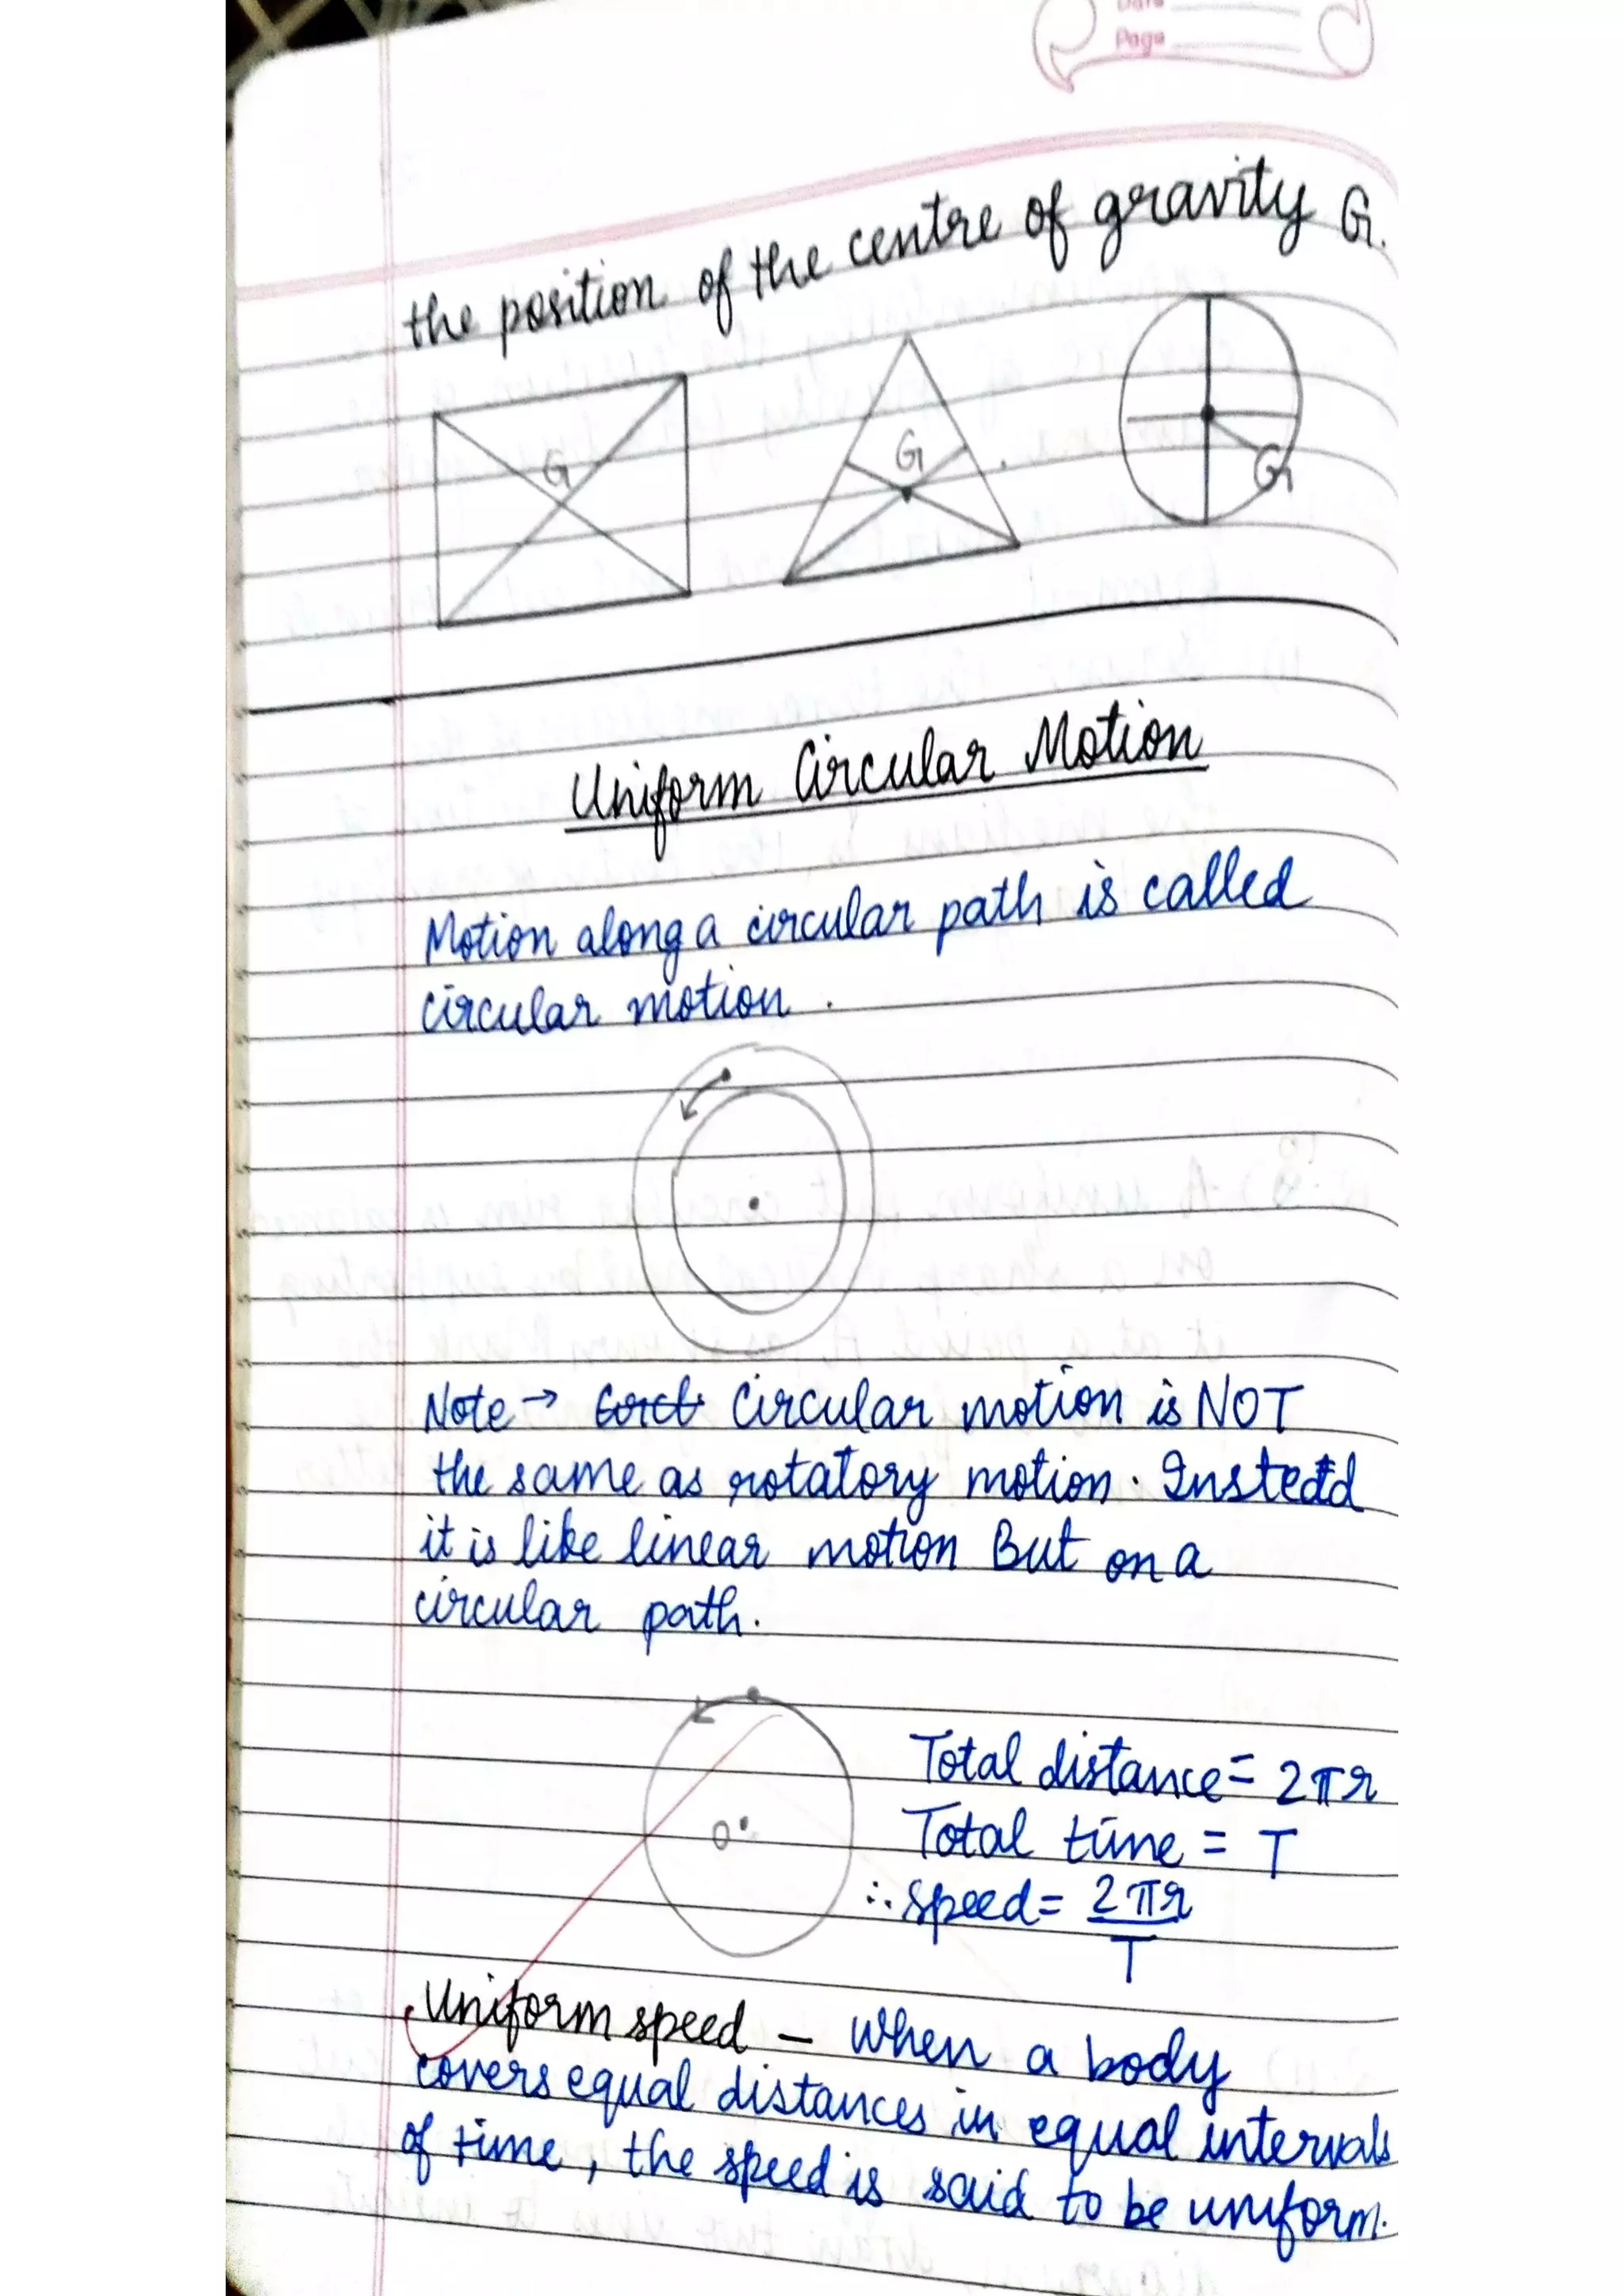 Date
Page
the position of the centre of gravity G.
G
G
G
Uniform Circular Motion
Motion along a circular path is called
circular motion.
Note → Circular motion is NOT
the same as rotatory motion. Instead
it is like linear motion But on a
circular path.
O
Total distance = 2πr
Total time = T
∴ speed = 2πr
T
Uniform speed - When a body
covers equal distances in equal intervals
of time, the speed is said to be uniform.